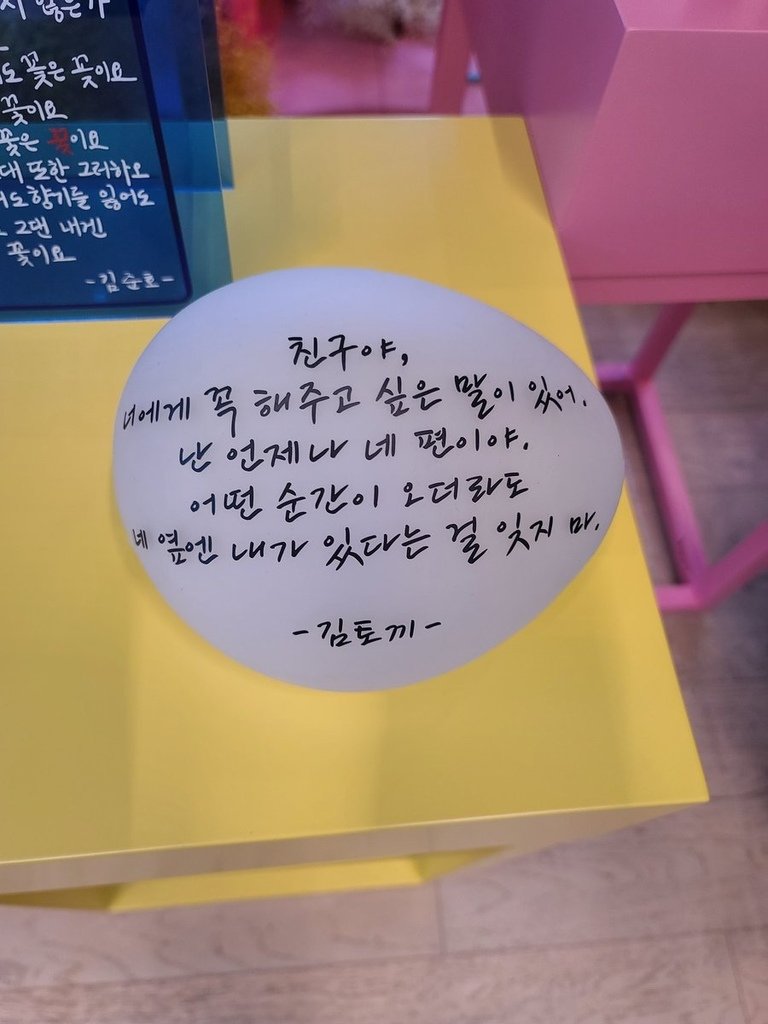 지 않은가
도 꽃은 꽃이요
꽃이요
꽃은 꽃이요
대 또한 그러하오
도 향기를 잃어도
그댄 내겐
꽃이요
-김준호-
친구야,
너에게 꼭 해주고 싶은 말이 있어.
난 언제나 네 편이야.
어떤 순간이 오더라도
네 옆엔 내가 있다는 걸 잊지 마.
-김토끼-